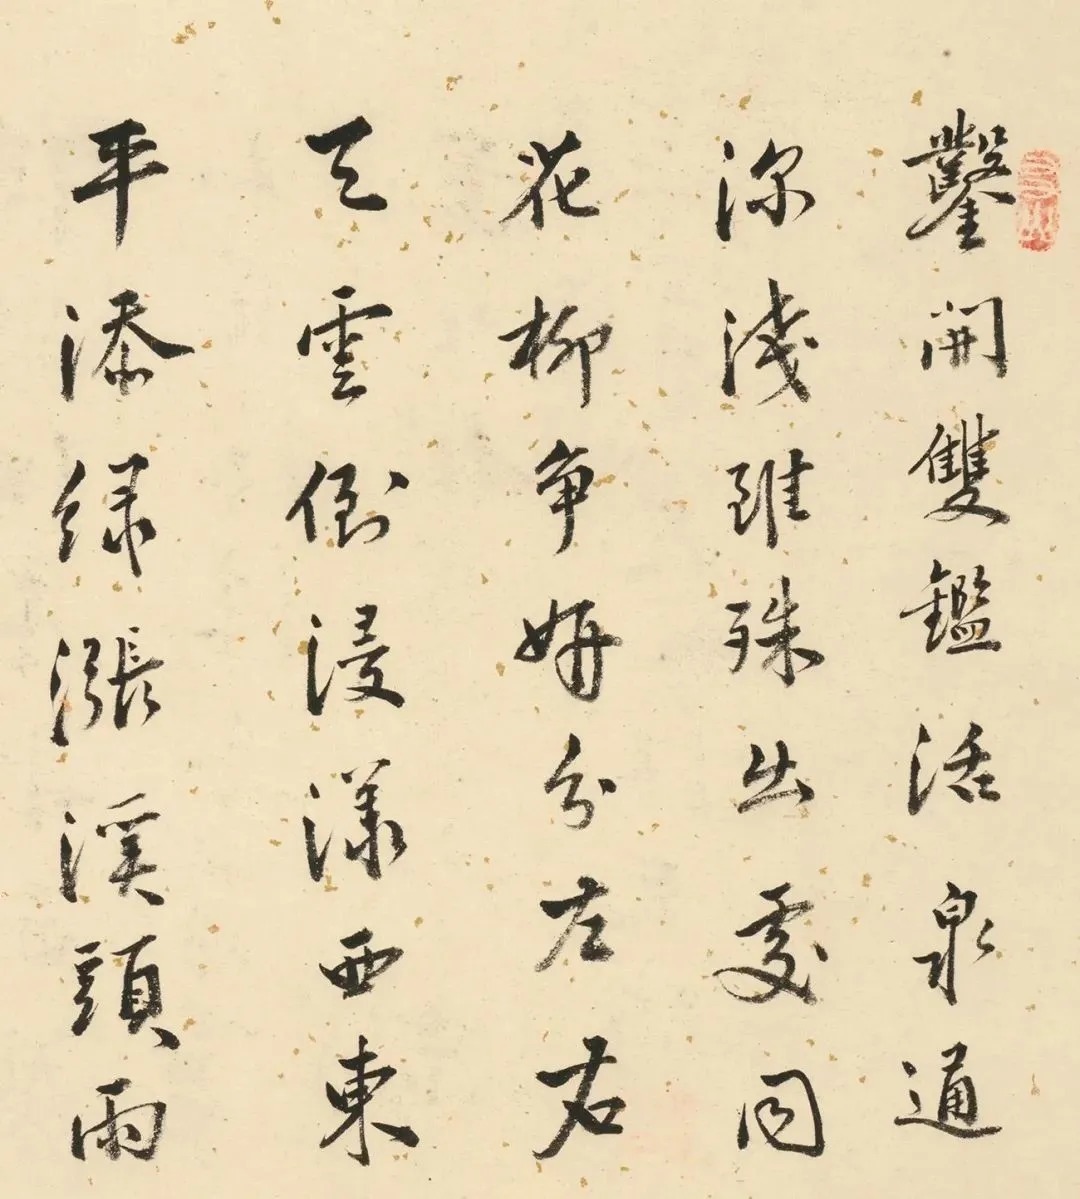 鑿開雙鑑活泉通
深淺雖殊出處同
花柳爭妍分左右
天雲倒浸漾西東
平添綠漲溪頭雨